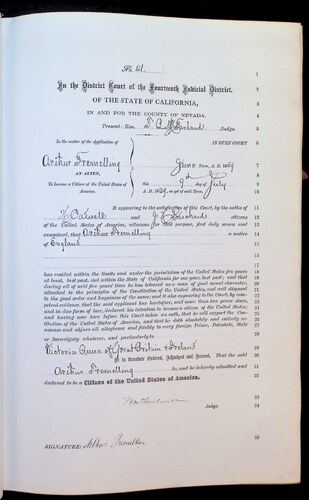 No. 61. 1
In the District Court of the Fourteenth Judicial District, 2
OF THE STATE OF CALIFORNIA, 3
IN AND FOR THE COUNTY OF NEVADA. 4
Present: Hon. T. B. McFarland Judge. 5
In the matter of the Application of IN OPEN COURT 6
Arthur Tremelling June Term, A. D. 1869 7
AN ALIEN, 8
To become a Citizen of the United States of this 9th day of July 9
America. A. D. 1869, 10
It appearing to the satisfaction of this Court, by the oaths of 11
and J. citizens 12
of the United States of America, witnesses for that purpose, first duly sworn and 13
examined, that Arthur Tremelling a native 14
of England 15
has resided within the limits and under the jurisdiction of the United States five years
at least, last past, and within the State of California for one year, last past; and that
during all of said five years time he has behaved as a man of good moral character,
attached to the principles of the Constitution of the United States, and well disposed
to the good order and happiness of the same; and it also appearing to the Court, by
evidence, that the said applicant has heretofore, and more than two years since,
and in due form of law, declared his intention to become a citizen of the United States;
and having now here before this Court taken an oath, that he will support the
Constitution of the United States of America, and that he doth absolutely and entirely
renounce and abjure all allegiance and fidelity to every foreign Prince, Potentate, State
or Sovereignty whatever, and particularly to
Victoria Queen of Great Britain & Ireland
It is therefore Ordered, Adjudged and Decreed, That the said
Arthur Tremelling be, and he is hereby admitted and
declared to be a Citizen of the United States of America.
Judge. 33
34
SIGNATURE: Arthur Tremelling 35